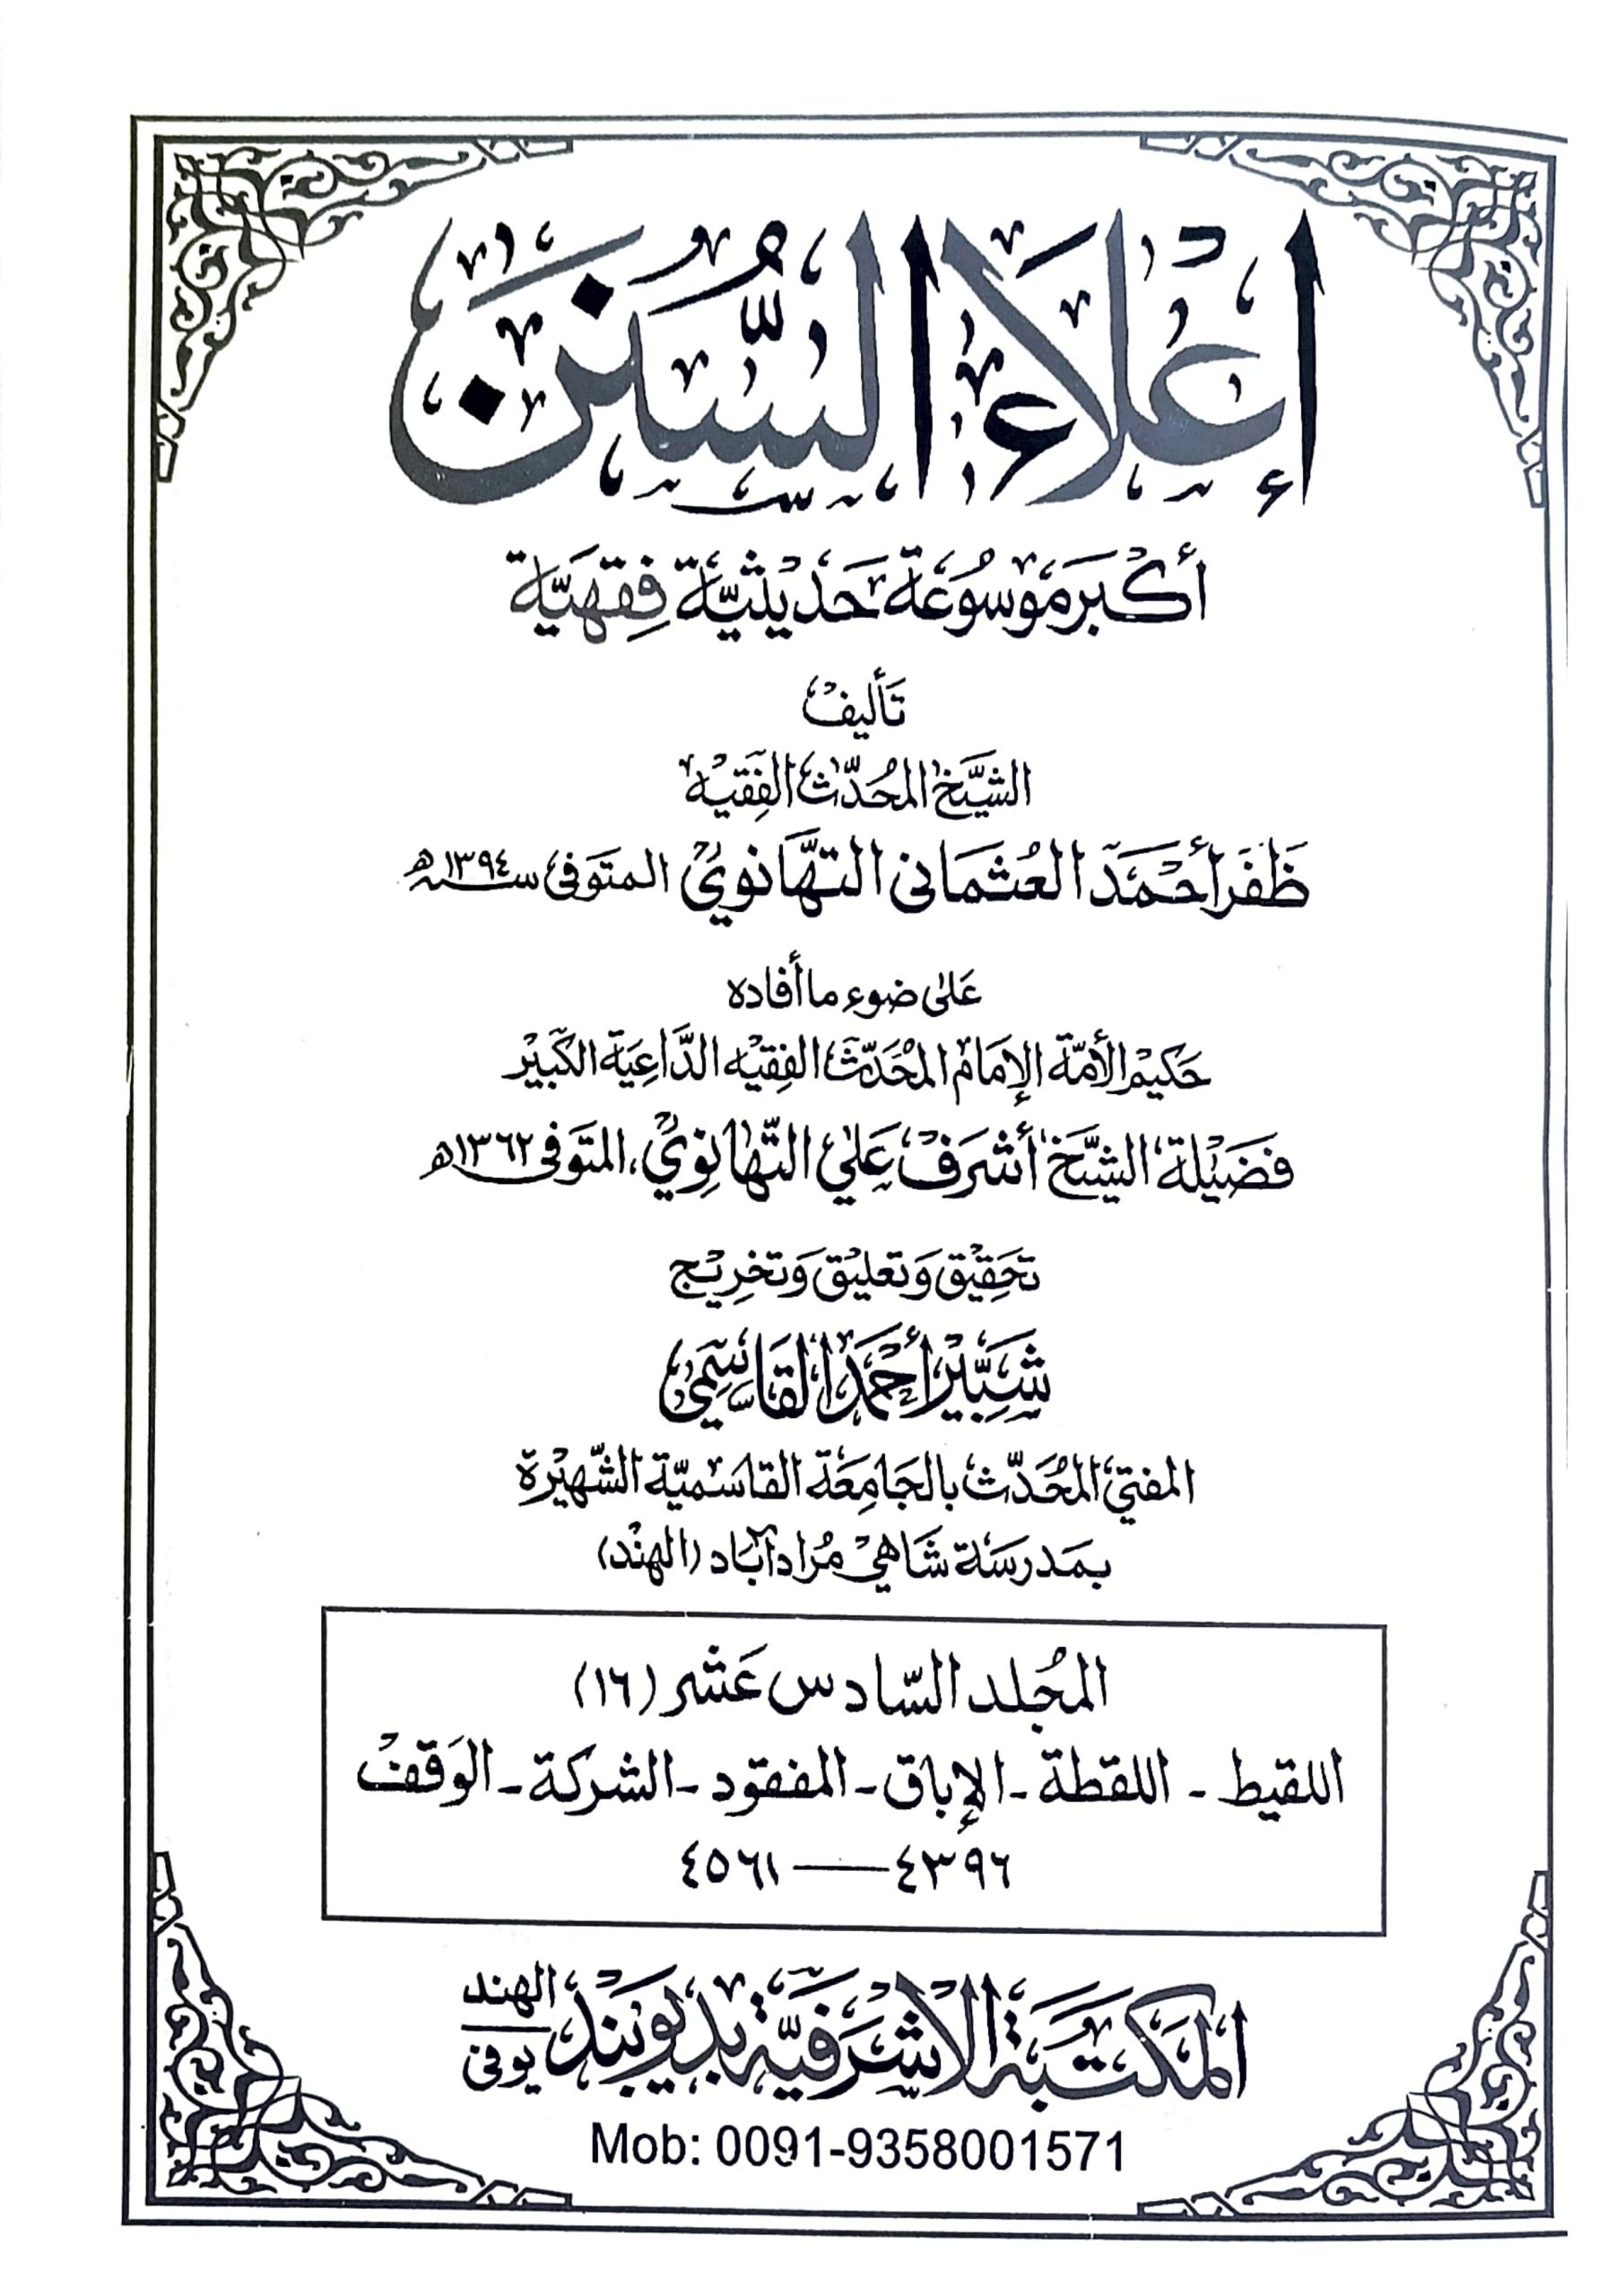 إعْلَاءُ السُّنَن
أكبر موسُوعَة حَديثيَّة فِقهيَّة
تأليف
الشيخ المُحدّث الفقيه
ظَفَر أحمَد العُثمَاني التهَّانوي المتوفى سنة ١٣٩٤ھ
عَلى ضوء ما أفاده
حَكيم الأمّة الإمَام المُحَدّث الفِقيه الدَّاعِية الكبير
فضيلة الشيخ أشرَف عَلي التّهانِوي، المتوفى ١٣٦٢ھ
تحقِيق وَتعليق وَتخرِيج
شبِّير أحمَد القَاسِمي
المفتي المُحَدّث بالجَامِعَة القاسميّة الشّهيرة
بمَدرسَة شَاهي مُراد آبَاد (الهند)
المجُلد السّادس عَشر (١٦)
اللقيط - اللقطة - الإباق - المفقود - الشركة - الوَقف
٤٣٩٦ — ٤٥٦١
المكتَبَة الاشرَفيَّة بديوبَند يوفى الهند
Mob: 0091-9358001571